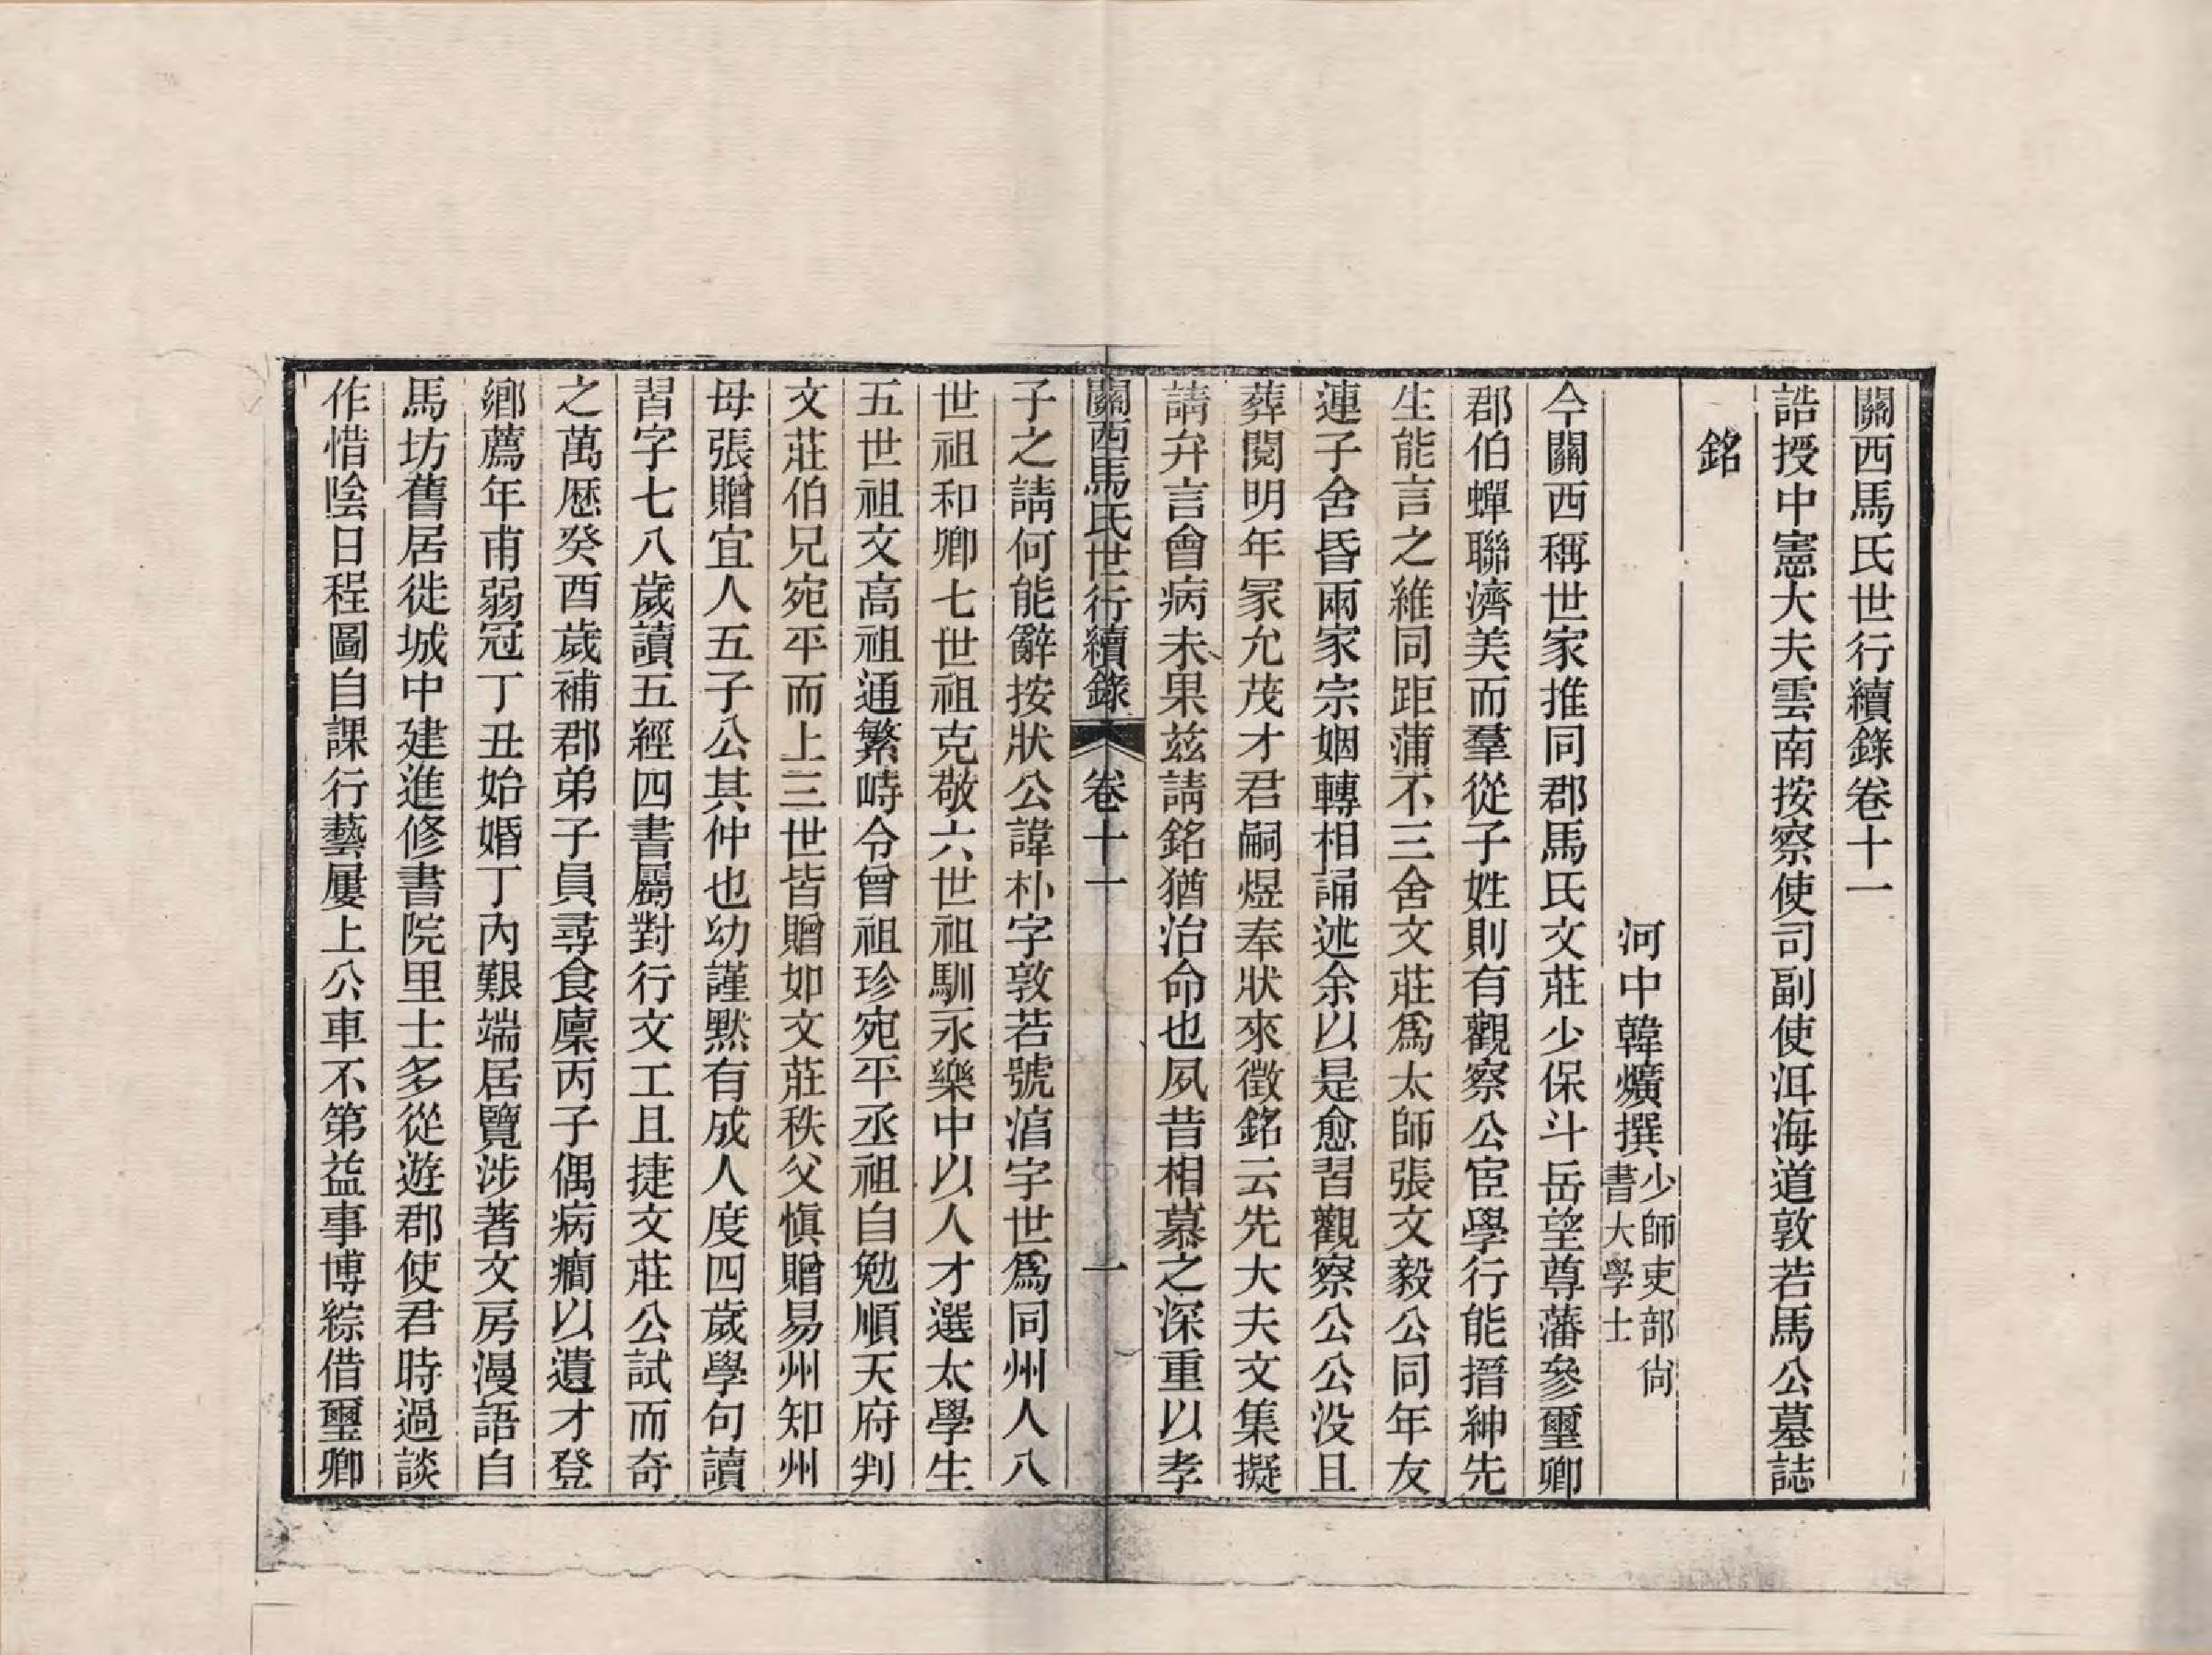 關西馬氏世行續錄卷十一
誥授中憲大夫雲南按察使司副使洱海道敦若馬公墓誌
銘
河中韓爌撰少師吏部尙書大學士
今關西稱世家推同郡馬氏文莊少保斗岳望尊藩參璽卿
郡伯蟬聯濟美而羣從子姓則有觀察公宦學行能搢紳先
生能言之維同距蒲不三舍文莊爲太師張文毅公同年友
蓮子舍昏兩家宗姻轉相誦述余以是愈習觀察公公没且
葬閱明年冢允茂才君嗣煜奉狀來徵銘云先大夫文集擬
請弁言會病未果茲請銘猶治命也夙昔相慕之深重以孝
關西馬氏世行續錄 卷十一 一
子之請何能辭按狀公諱朴字敦若號淯宇世爲同州人八
世祖和卿七世祖克敬六世祖馴永樂中以人才選太學生
五世祖文高祖通繁峙令曾祖珍宛平丞祖自勉順天府判
文莊伯兄宛平而上三世皆贈如文莊秩父愼贈易州知州
母張贈宜人五子公其仲也幼謹默有成人度四歲學句讀
習字七八歲讀五經四書屬對行文工且捷文莊公試而奇
之萬厯癸酉歲補郡弟子員尋食廩丙子偶病癎以遺才登
鄉薦年甫弱冠丁丑始婚丁內艱端居覽涉著文房漫語自
馬坊舊居徙城中建進修書院里士多從遊郡使君時過談
作惜陰日程圖自課行藝屢上公車不第益事博綜借璽卿